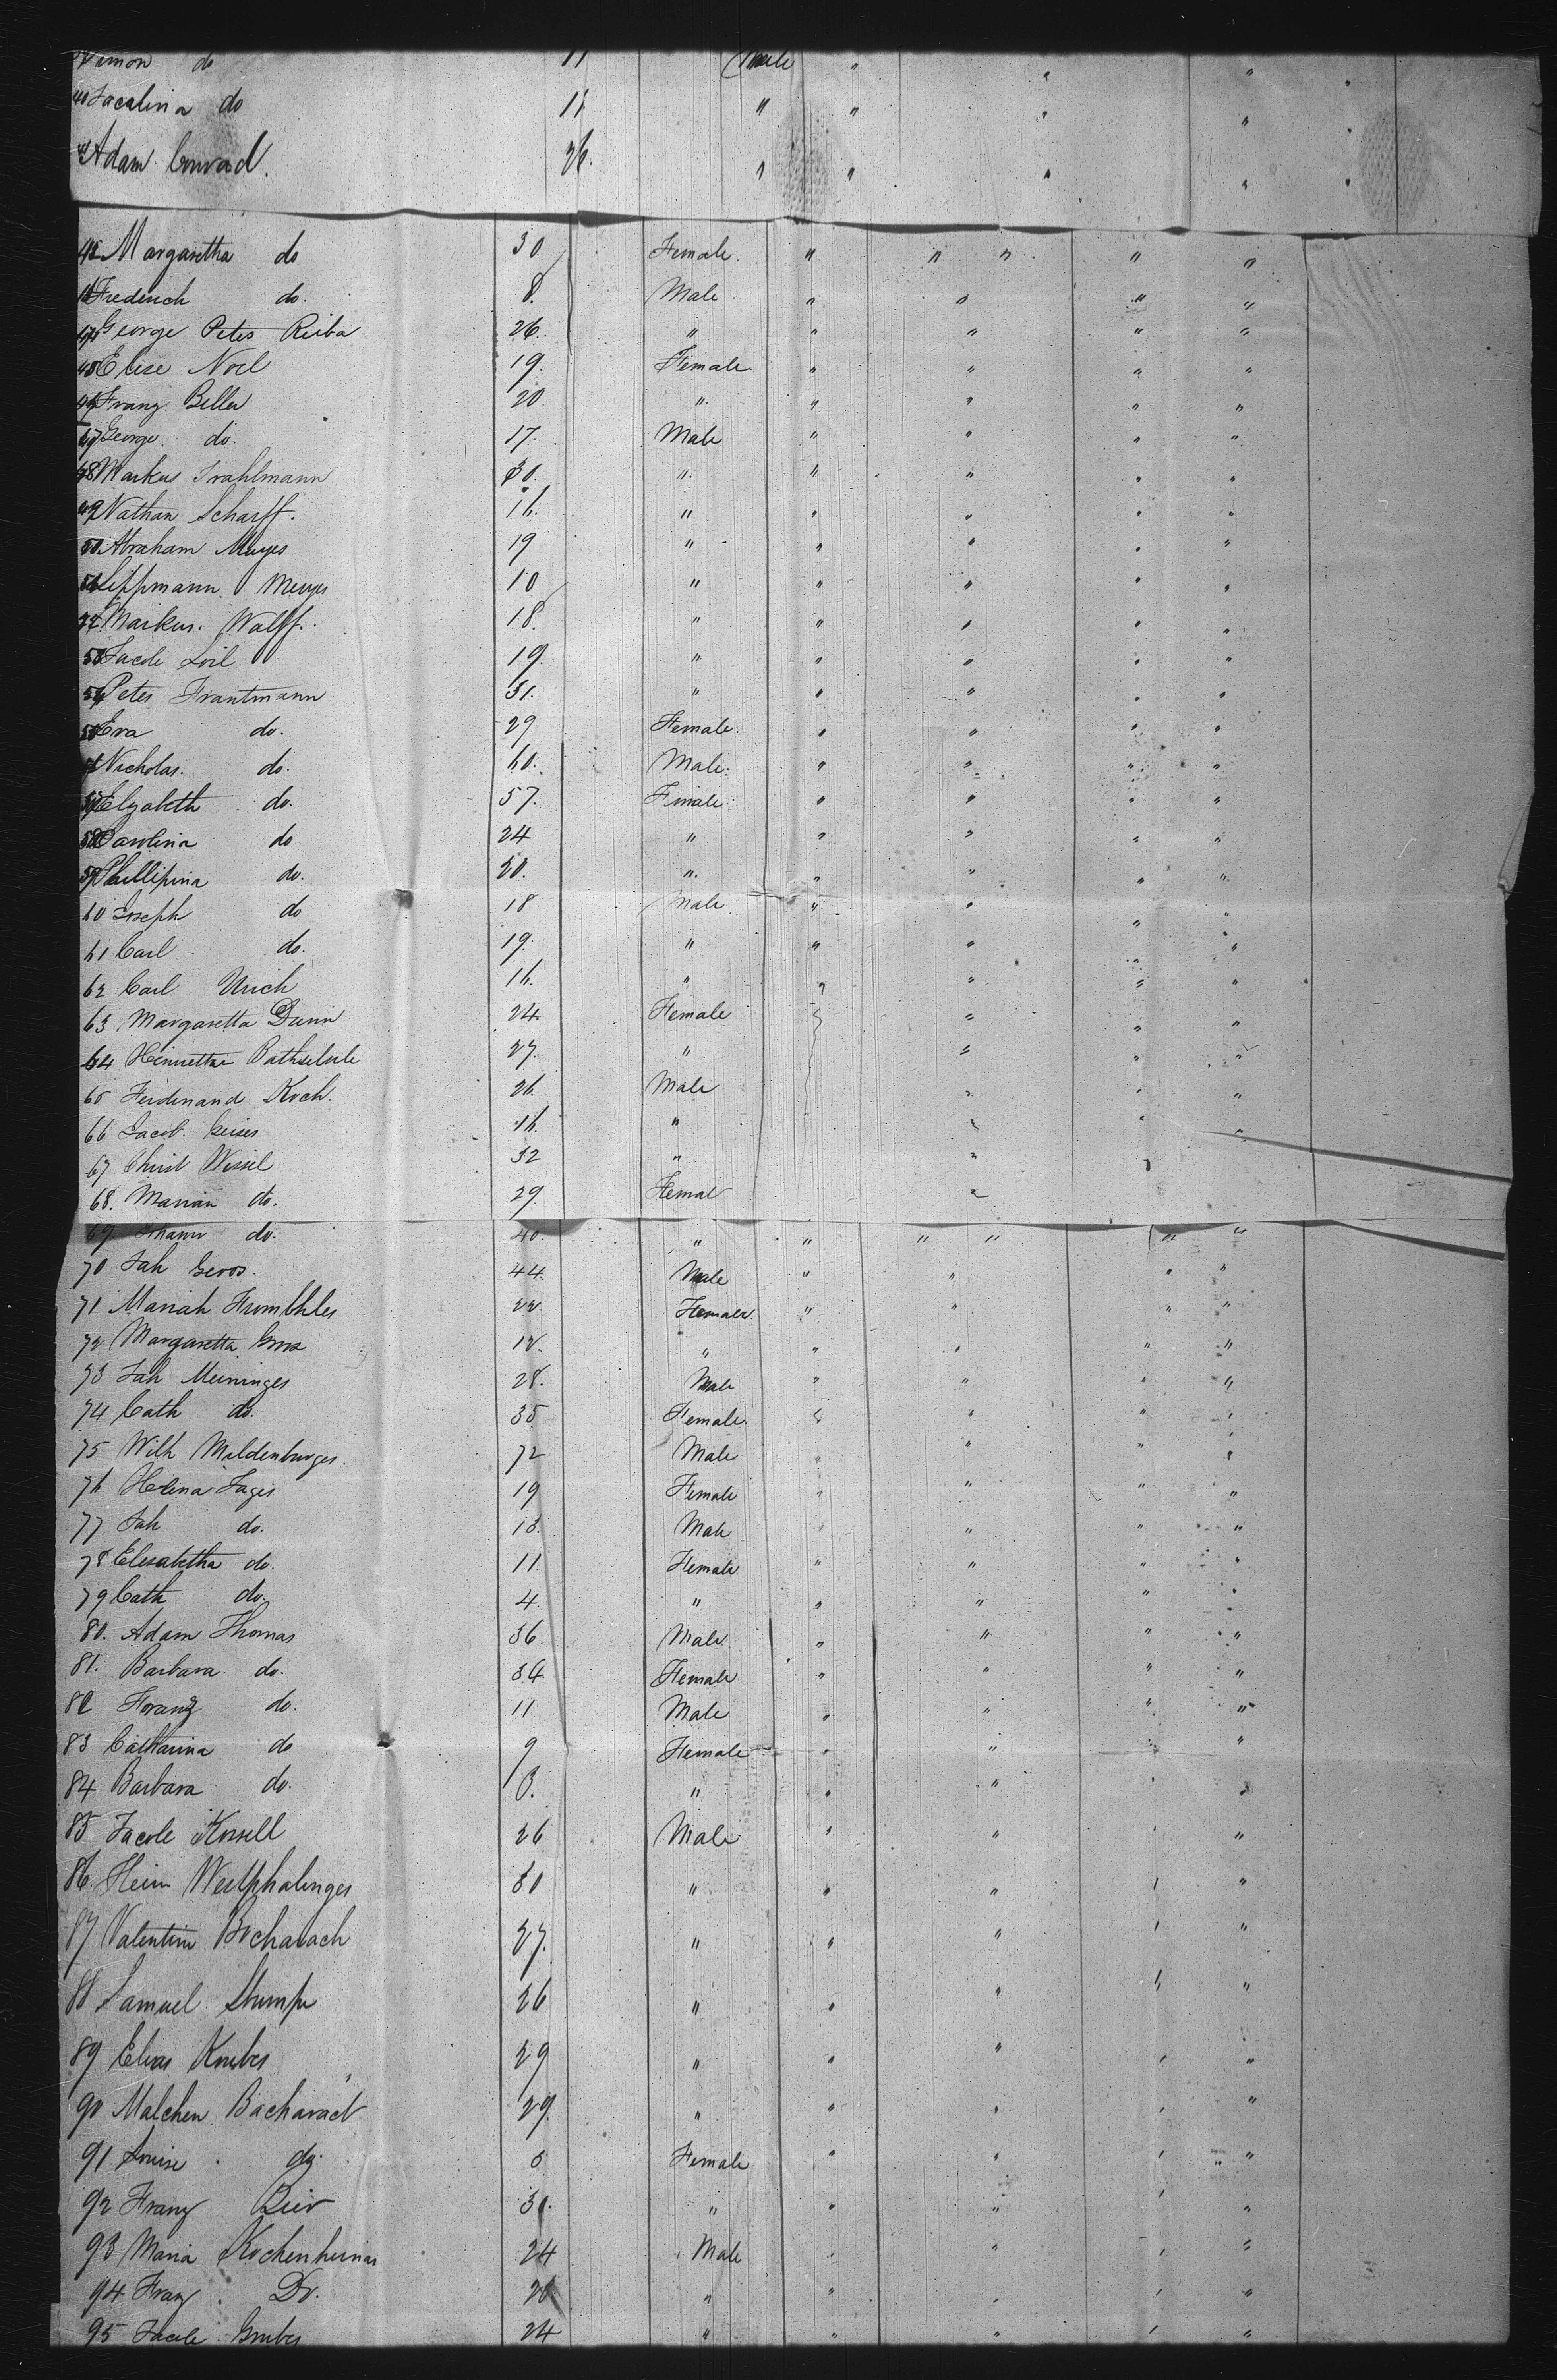 do 11 Male " " " "
40 Jacalina do 11 " " " " "
Adam Conrad. 26. " " " " "
42 Margaretha do 30 Female. " " " " "
Frederich do. 8. Male " " " "
George Peter 26. " " " " "
45 Elise Noel 19. Female " " " "
Franz Beller 20 " " " " "
George do. 17. Male " " " "
48 Markus Trahlmann 30. " " " " "
49 Nathan Scharff. 16. " " " " "
50 Abraham Meyes 19 " " " " "
Lippmann Meyes 10 " " " " "
52 Markus. Wolff. 18. " " " " "
53 Jacob 19. " " " " "
54 Peter Trantmann 31. " " " " "
55 Eva do. 29 Female. " " " "
Nicholas. do. 60. Male. " " " "
57 Elyabeth do. 57. Female. " " " "
58 Carolina do 24 " " " " "
59 Phillipina do. 20. " " " " "
60 Joseph do 18 Male. " " " "
61 Carl do. 19. " " " " "
62 Carl Urich 16. " " " " "
63 Margaretta Dunn 24 Female " " " "
64 Henrietta 27. " " " "
65 Ferdinand Koch. 26. Male " " "
66 Jacob Geises 16. " " " "
67 Christ Wessel 32 " " "
68. Marian do. 29 Femal "
69 Johann. do. 40 " " " " " "
70 Joh Gross. 44. Male " " " "
71 Mariah 22 Female " " " "
72 Margaretta Gross 12. " " " " "
73 Joh Meininges 28. Male " " " "
74 Cath do. 35 Female. " " " "
75 Wilh Maldenburges. 72 Male " " " "
76 Helena Jages 19 Female " " " "
77 Joh do. 13. Male " " " "
78 Elisabetha do. 11 Female " " " "
79 Cath do. 4. " " " " "
80. Adam Thomas 36 Male " " " "
81. Barbara do. 34 Female " " " "
82 Franz do. 11 Male " " " "
83 Catharina do 9 Female " " " "
84 Barbara do. 3. " " " " "
85 Jacob Kossell 26 Male " " " "
86 Hein Westphalinges 30 " " " " "
87 Valentin Bacharach 27. " " " " "
88 Samuel Stumpe 26 " " " " "
89 Elias 29 " " " " "
90 Malchen Bacharach 29. " " " " "
91 Louise do. 5 Female " " " "
92 Franz 30. " " " " "
93 Maria 24 Male " " " "
94 Franz Do. 20 " " " " "
95 Jacob Grubes 24 " " " " "